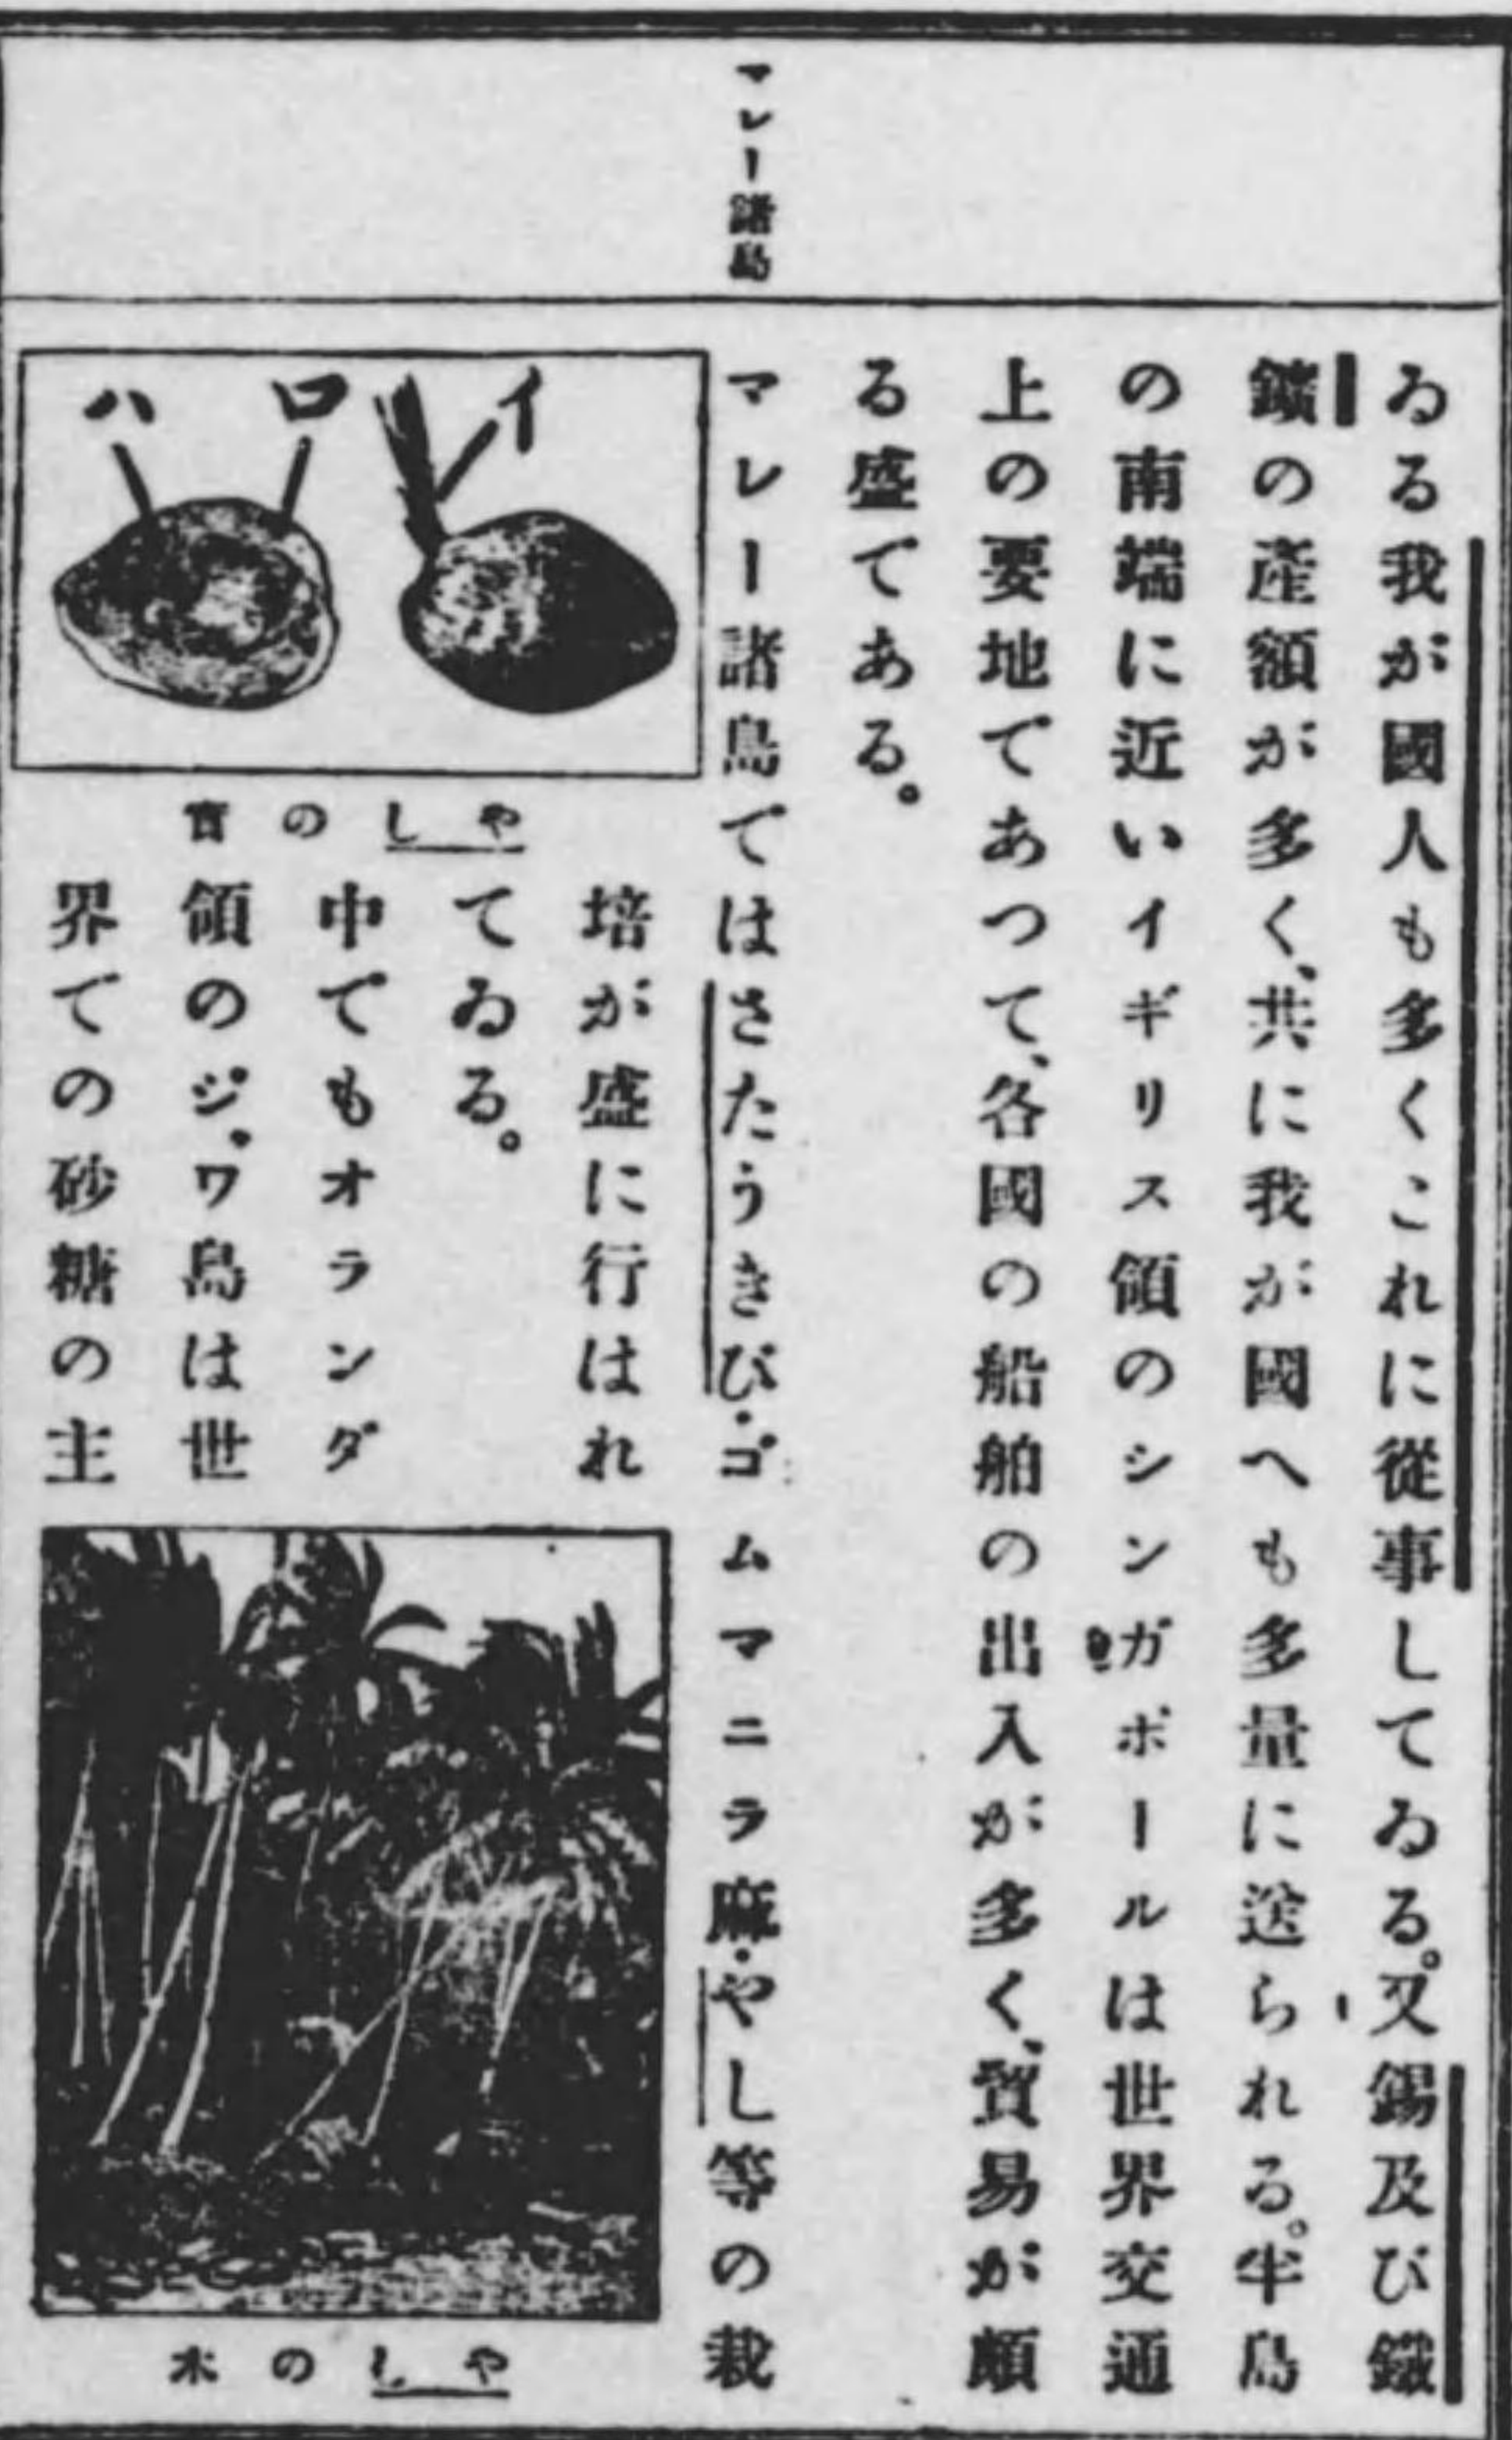 マレー諸島
ゐる我が國人も多くこれに從事してゐる。又錫及び鐵
鑛の產額が多く、共に我が國へも多量に送られる。半島
の南端に近いイギリス領のシンガポールは世界交通
上の要地であつて、各國の船舶の出入が多く、貿易が頗
る盛である。
マレー諸島ではさたうきび・ゴムマニラ麻・やし等の栽
培が盛に行はれ
てゐる。
中でもオランダ
領のジ.ワ島は世
界での砂糖の主
イ
ロ
ハ
やしの實
やしの木